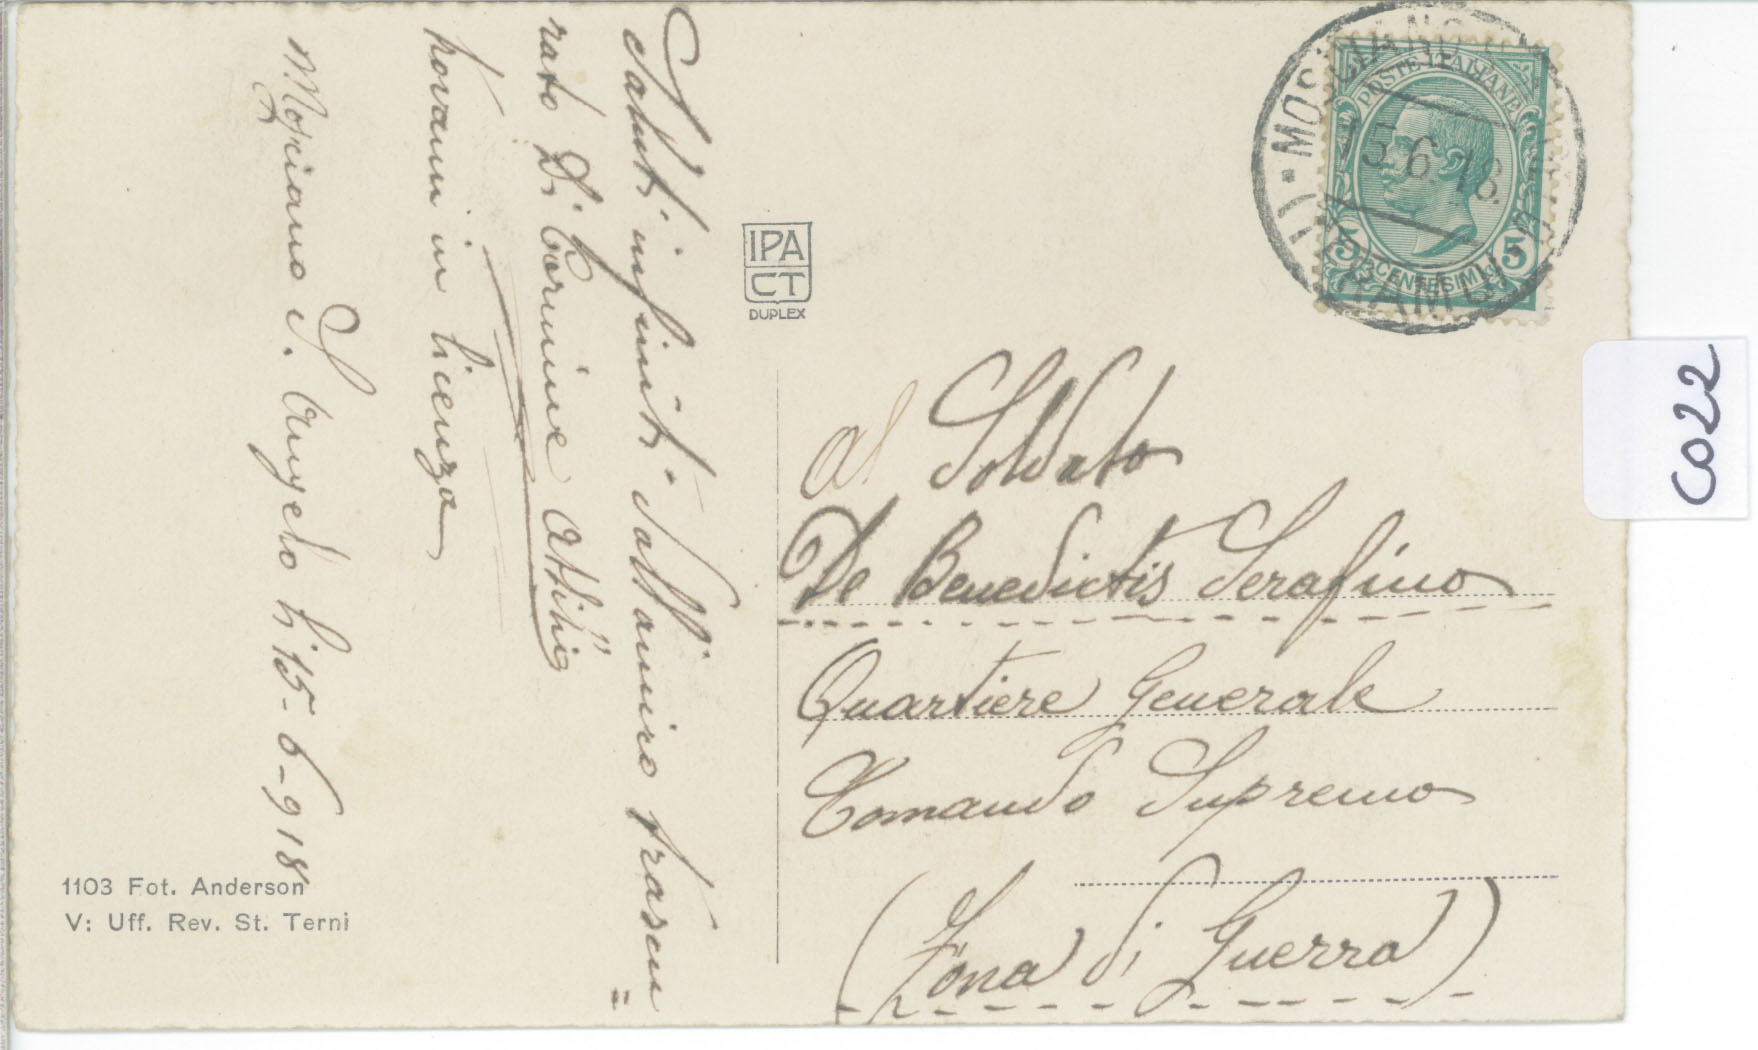 Saluti infiniti dall'amico trascu=
rato Di Carmine Attilio
trovami in licenza
Mosciano S. Angelo li 15-6-918
IPA
CT
DUPLEX
POSTE ITALIANE
5 CENTESIMI 5
MOSCIANO
15.6.18.
TERAMO
al Soldato
De Benedictis Serafino
Quartiere Generale
Comando Supremo
(Zona di Guerra)
1103 Fot. Anderson
V: Uff. Rev. St. Terni
C022